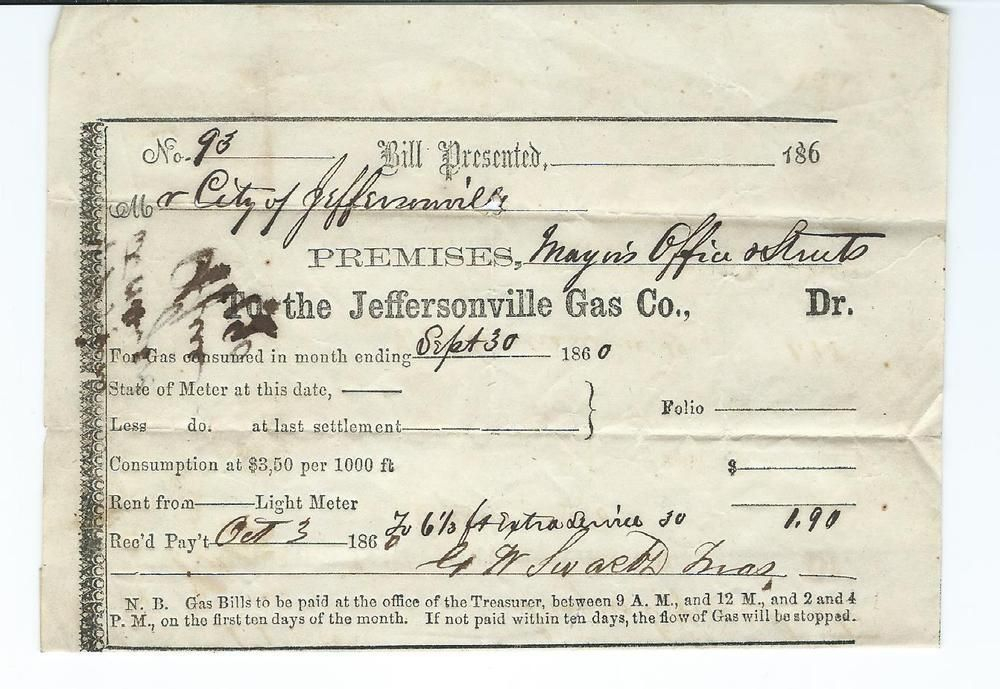 No. 93 Bill Presented, 186
Mr City of Jeffersonville
PREMISES, Mayor's Office & Streets
To the Jeffersonville Gas Co., Dr.
For Gas consumed in month ending Sept 30 1860
State of Meter at this date,
Folio
Less do. at last settlement
Consumption at $3,50 per 1000 ft $
Rent from Light Meter
To 6 1/3 ft Extra Service 30 1.90
Rec'd Pay't Oct 3 1860
W Swartz Treas
N. B. Gas Bills to be paid at the office of the Treasurer, between 9 A. M., and 12 M., and 2 and 4
P. M., on the first ten days of the month. If not paid within ten days, the flow of Gas will be stopped.